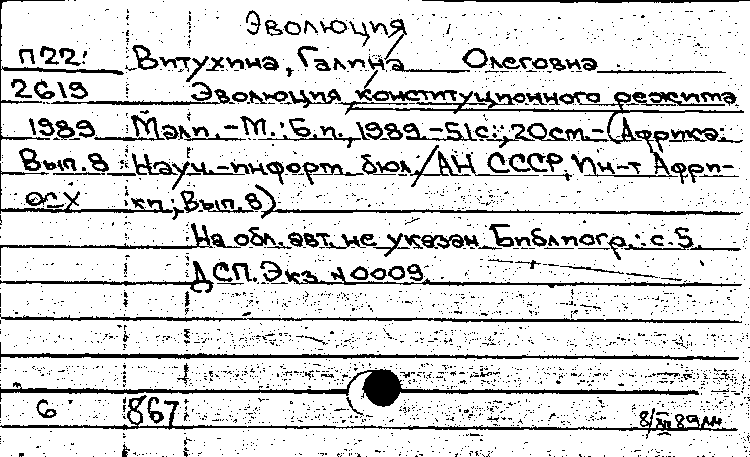 Эволюция
П22: Витухина, Галина Олеговна
2619 Эволюция конституционного режима
1989 Мали. – М.: Б.и., 1989. – 51с.; 20см. – (Африка:
Вып. 8 Науч.-информ. бюл. / АН СССР, Ин-т Афри-
осх ки; Вып. 8)
На обл. авт. не указан. Библиогр.: с. 5.
ДСП. Экз. N0009.
6 867 8/XII 89